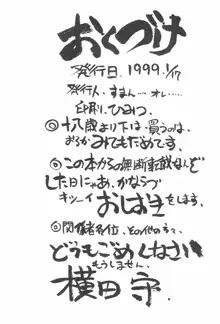 おくづけ
発行日. 1999. 1/17
発行人、すまん… オレ……
印刷. ひみつ.
◎十八歳より下は、買うのは、
おろか みてもだめです。
◎この本からの無断転載なんぞ
した日にゃあ、かならづ
キツーイ おしおきをします。
◎関係者各位、その他の方々、
どうもごめんなさい
もうしません。
横田 守.